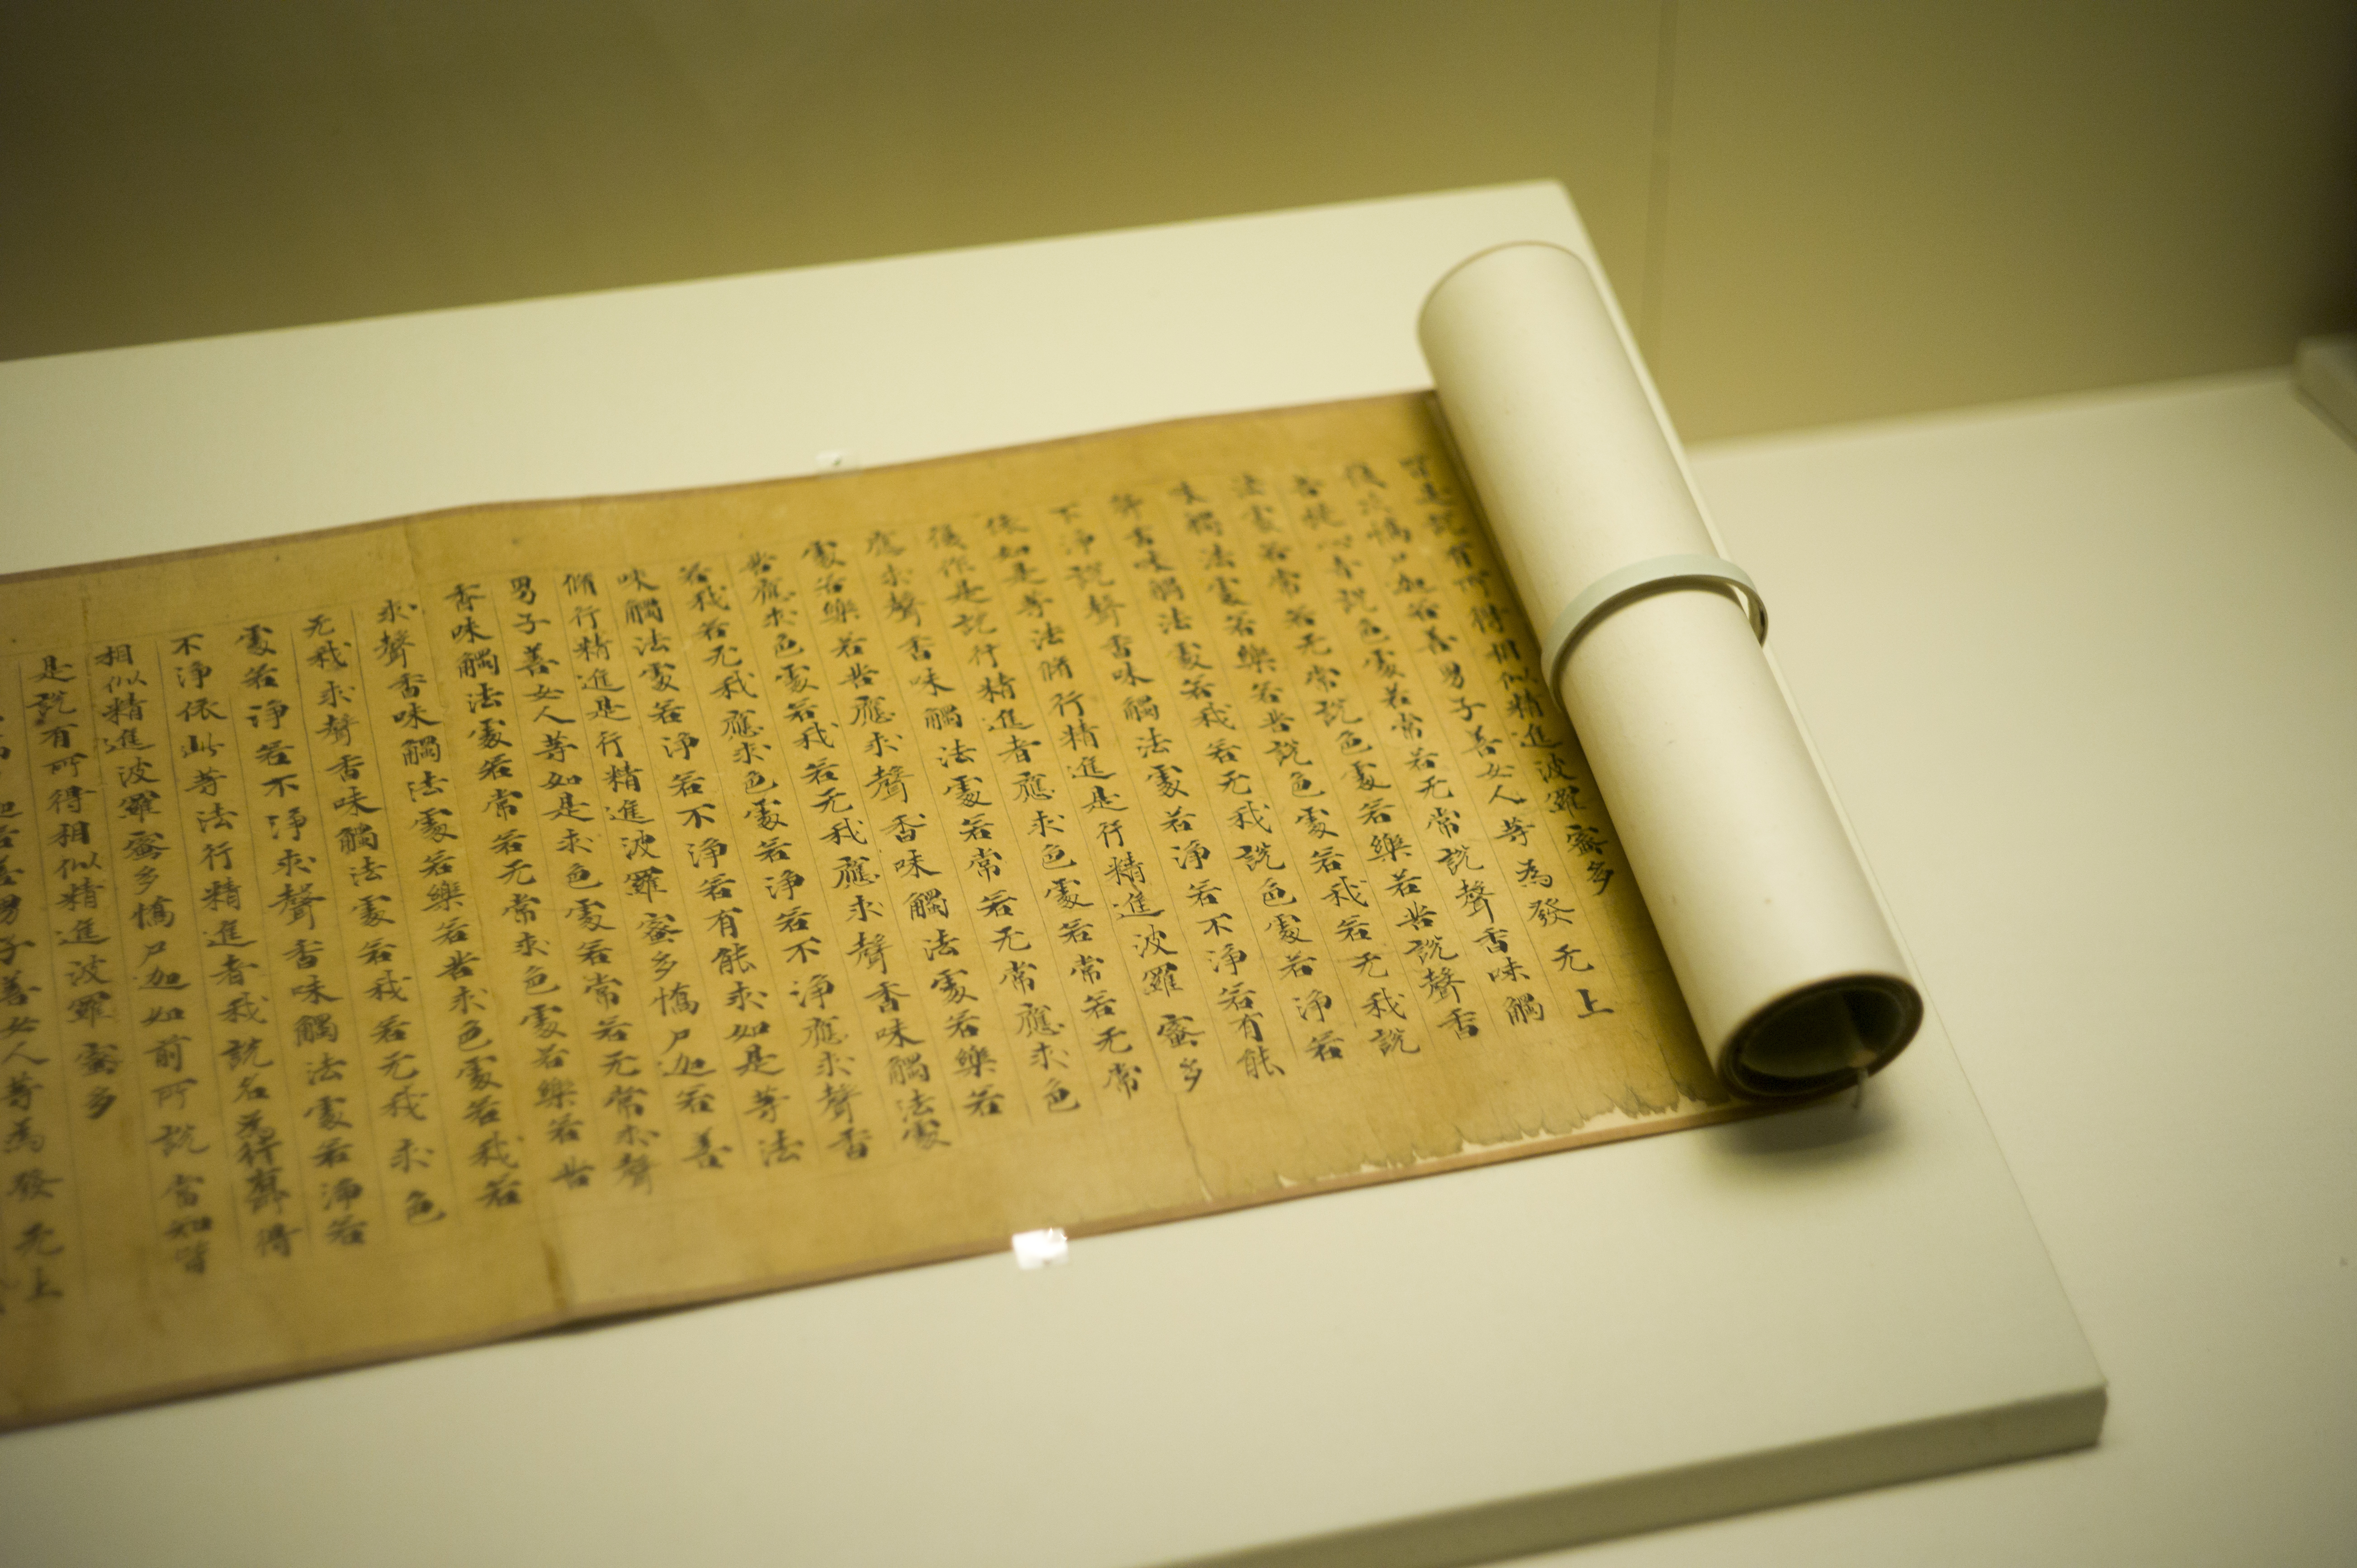 皆是說有所得相似精進波羅蜜多
復次憍尸迦若善男子善女人等為發无上
菩提心者說色處若常若无常說聲香味觸
法處若常若无常說色處若樂若苦說聲香
味觸法處若樂若苦說色處若我若无我說
聲香味觸法處若我若无我說色處若淨若
不淨說聲香味觸法處若淨若不淨若有能
依如是等法脩行精進是行精進波羅蜜多
復作是說行精進者應求色處若常若无常
應求聲香味觸法處若常若无常應求色
處若樂若苦應求聲香味觸法處若樂若
苦應求色處若我若无我應求聲香味觸法處
若我若无我應求色處若淨若不淨應求聲香
味觸法處若淨若不淨若有能求如是等法
脩行精進是行精進波羅蜜多憍尸迦若善
男子善女人等如是求色處若常若无常求聲
香味觸法處若常若无常求色處若樂若苦
求聲香味觸法處若樂若苦求色處若我若
无我求聲香味觸法處若我若无我求色
處若淨若不淨求聲香味觸法處若淨若
不淨依此等法行精進者我說名為行有所得
相似精進波羅蜜多憍尸迦如前所說當知皆
是說有所得相似精進波羅蜜多
迦若善男子善女人等為發无上